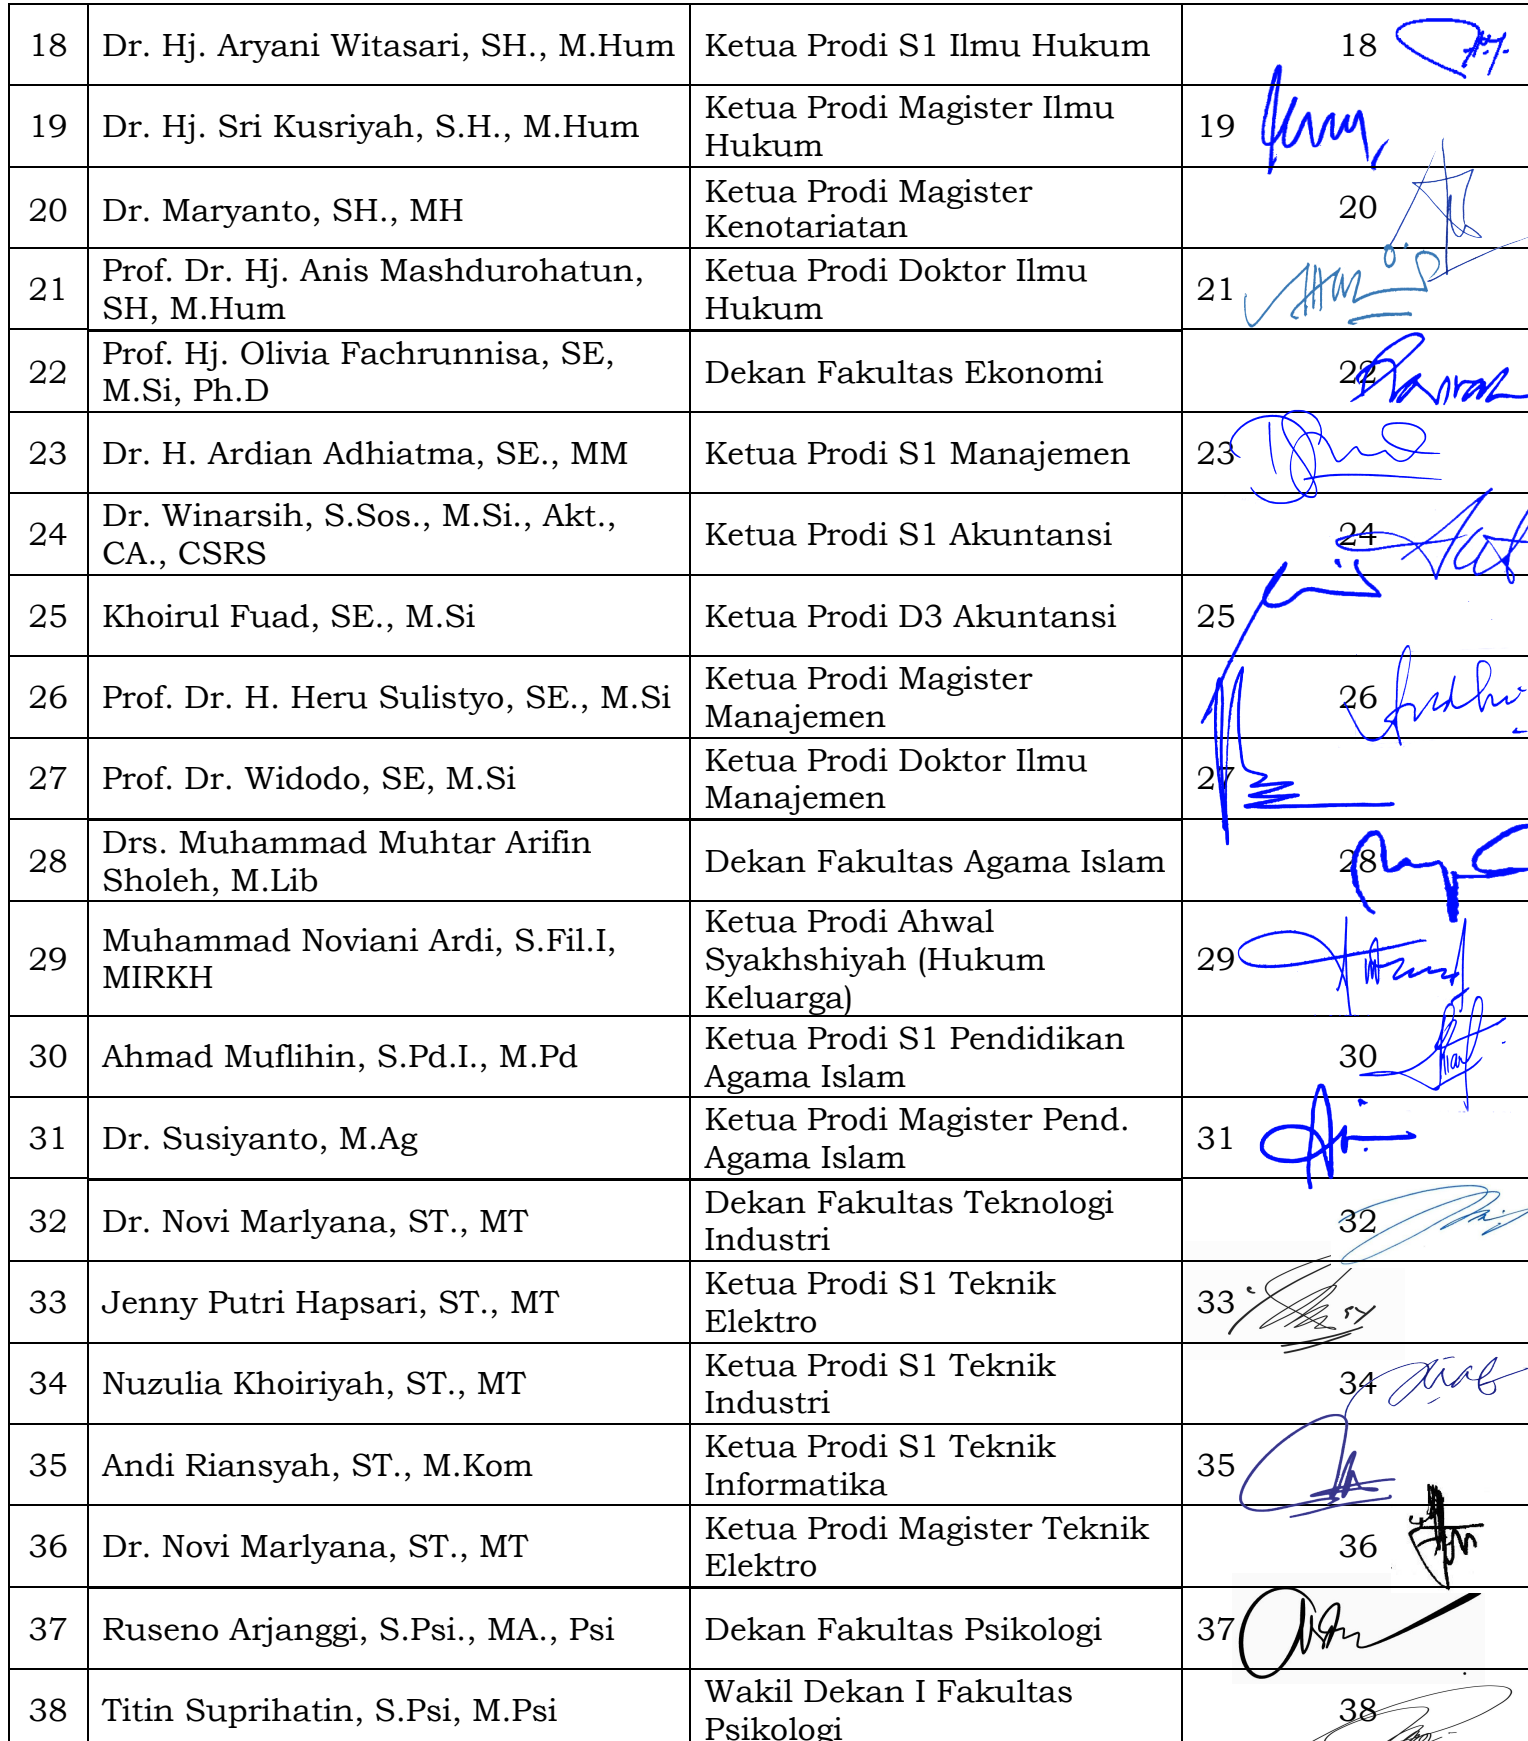 18 Dr. Hj. Aryani Witasari, SH., M.Hum Ketua Prodi S1 Ilmu Hukum 18
19 Dr. Hj. Sri Kusriyah, S.H., M.Hum Ketua Prodi Magister Ilmu
Hukum 19
20 Dr. Maryanto, SH., MH Ketua Prodi Magister
Kenotariatan 20
21 Prof. Dr. Hj. Anis Mashdurohatun,
SH, M.Hum Ketua Prodi Doktor Ilmu
Hukum 21
22 Prof. Hj. Olivia Fachrunnisa, SE,
M.Si, Ph.D Dekan Fakultas Ekonomi 22
23 Dr. H. Ardian Adhiatma, SE., MM Ketua Prodi S1 Manajemen 23
24 Dr. Winarsih, S.Sos., M.Si., Akt.,
CA., CSRS Ketua Prodi S1 Akuntansi 24
25 Khoirul Fuad, SE., M.Si Ketua Prodi D3 Akuntansi 25
26 Prof. Dr. H. Heru Sulistyo, SE., M.Si Ketua Prodi Magister
Manajemen 26
27 Prof. Dr. Widodo, SE, M.Si Ketua Prodi Doktor Ilmu
Manajemen 27
28 Drs. Muhammad Muhtar Arifin
Sholeh, M.Lib Dekan Fakultas Agama Islam 28
29 Muhammad Noviani Ardi, S.Fil.I,
MIRKH Ketua Prodi Ahwal
Syakhshiyah (Hukum
Keluarga) 29
30 Ahmad Muflihin, S.Pd.I., M.Pd Ketua Prodi S1 Pendidikan
Agama Islam 30
31 Dr. Susiyanto, M.Ag Ketua Prodi Magister Pend.
Agama Islam 31
32 Dr. Novi Marlyana, ST., MT Dekan Fakultas Teknologi
Industri 32
33 Jenny Putri Hapsari, ST., MT Ketua Prodi S1 Teknik
Elektro 33
34 Nuzulia Khoiriyah, ST., MT Ketua Prodi S1 Teknik
Industri 34
35 Andi Riansyah, ST., M.Kom Ketua Prodi S1 Teknik
Informatika 35
36 Dr. Novi Marlyana, ST., MT Ketua Prodi Magister Teknik
Elektro 36
37 Ruseno Arjanggi, S.Psi., MA., Psi Dekan Fakultas Psikologi 37
38 Titin Suprihatin, S.Psi, M.Psi Wakil Dekan I Fakultas
Psikologi 38